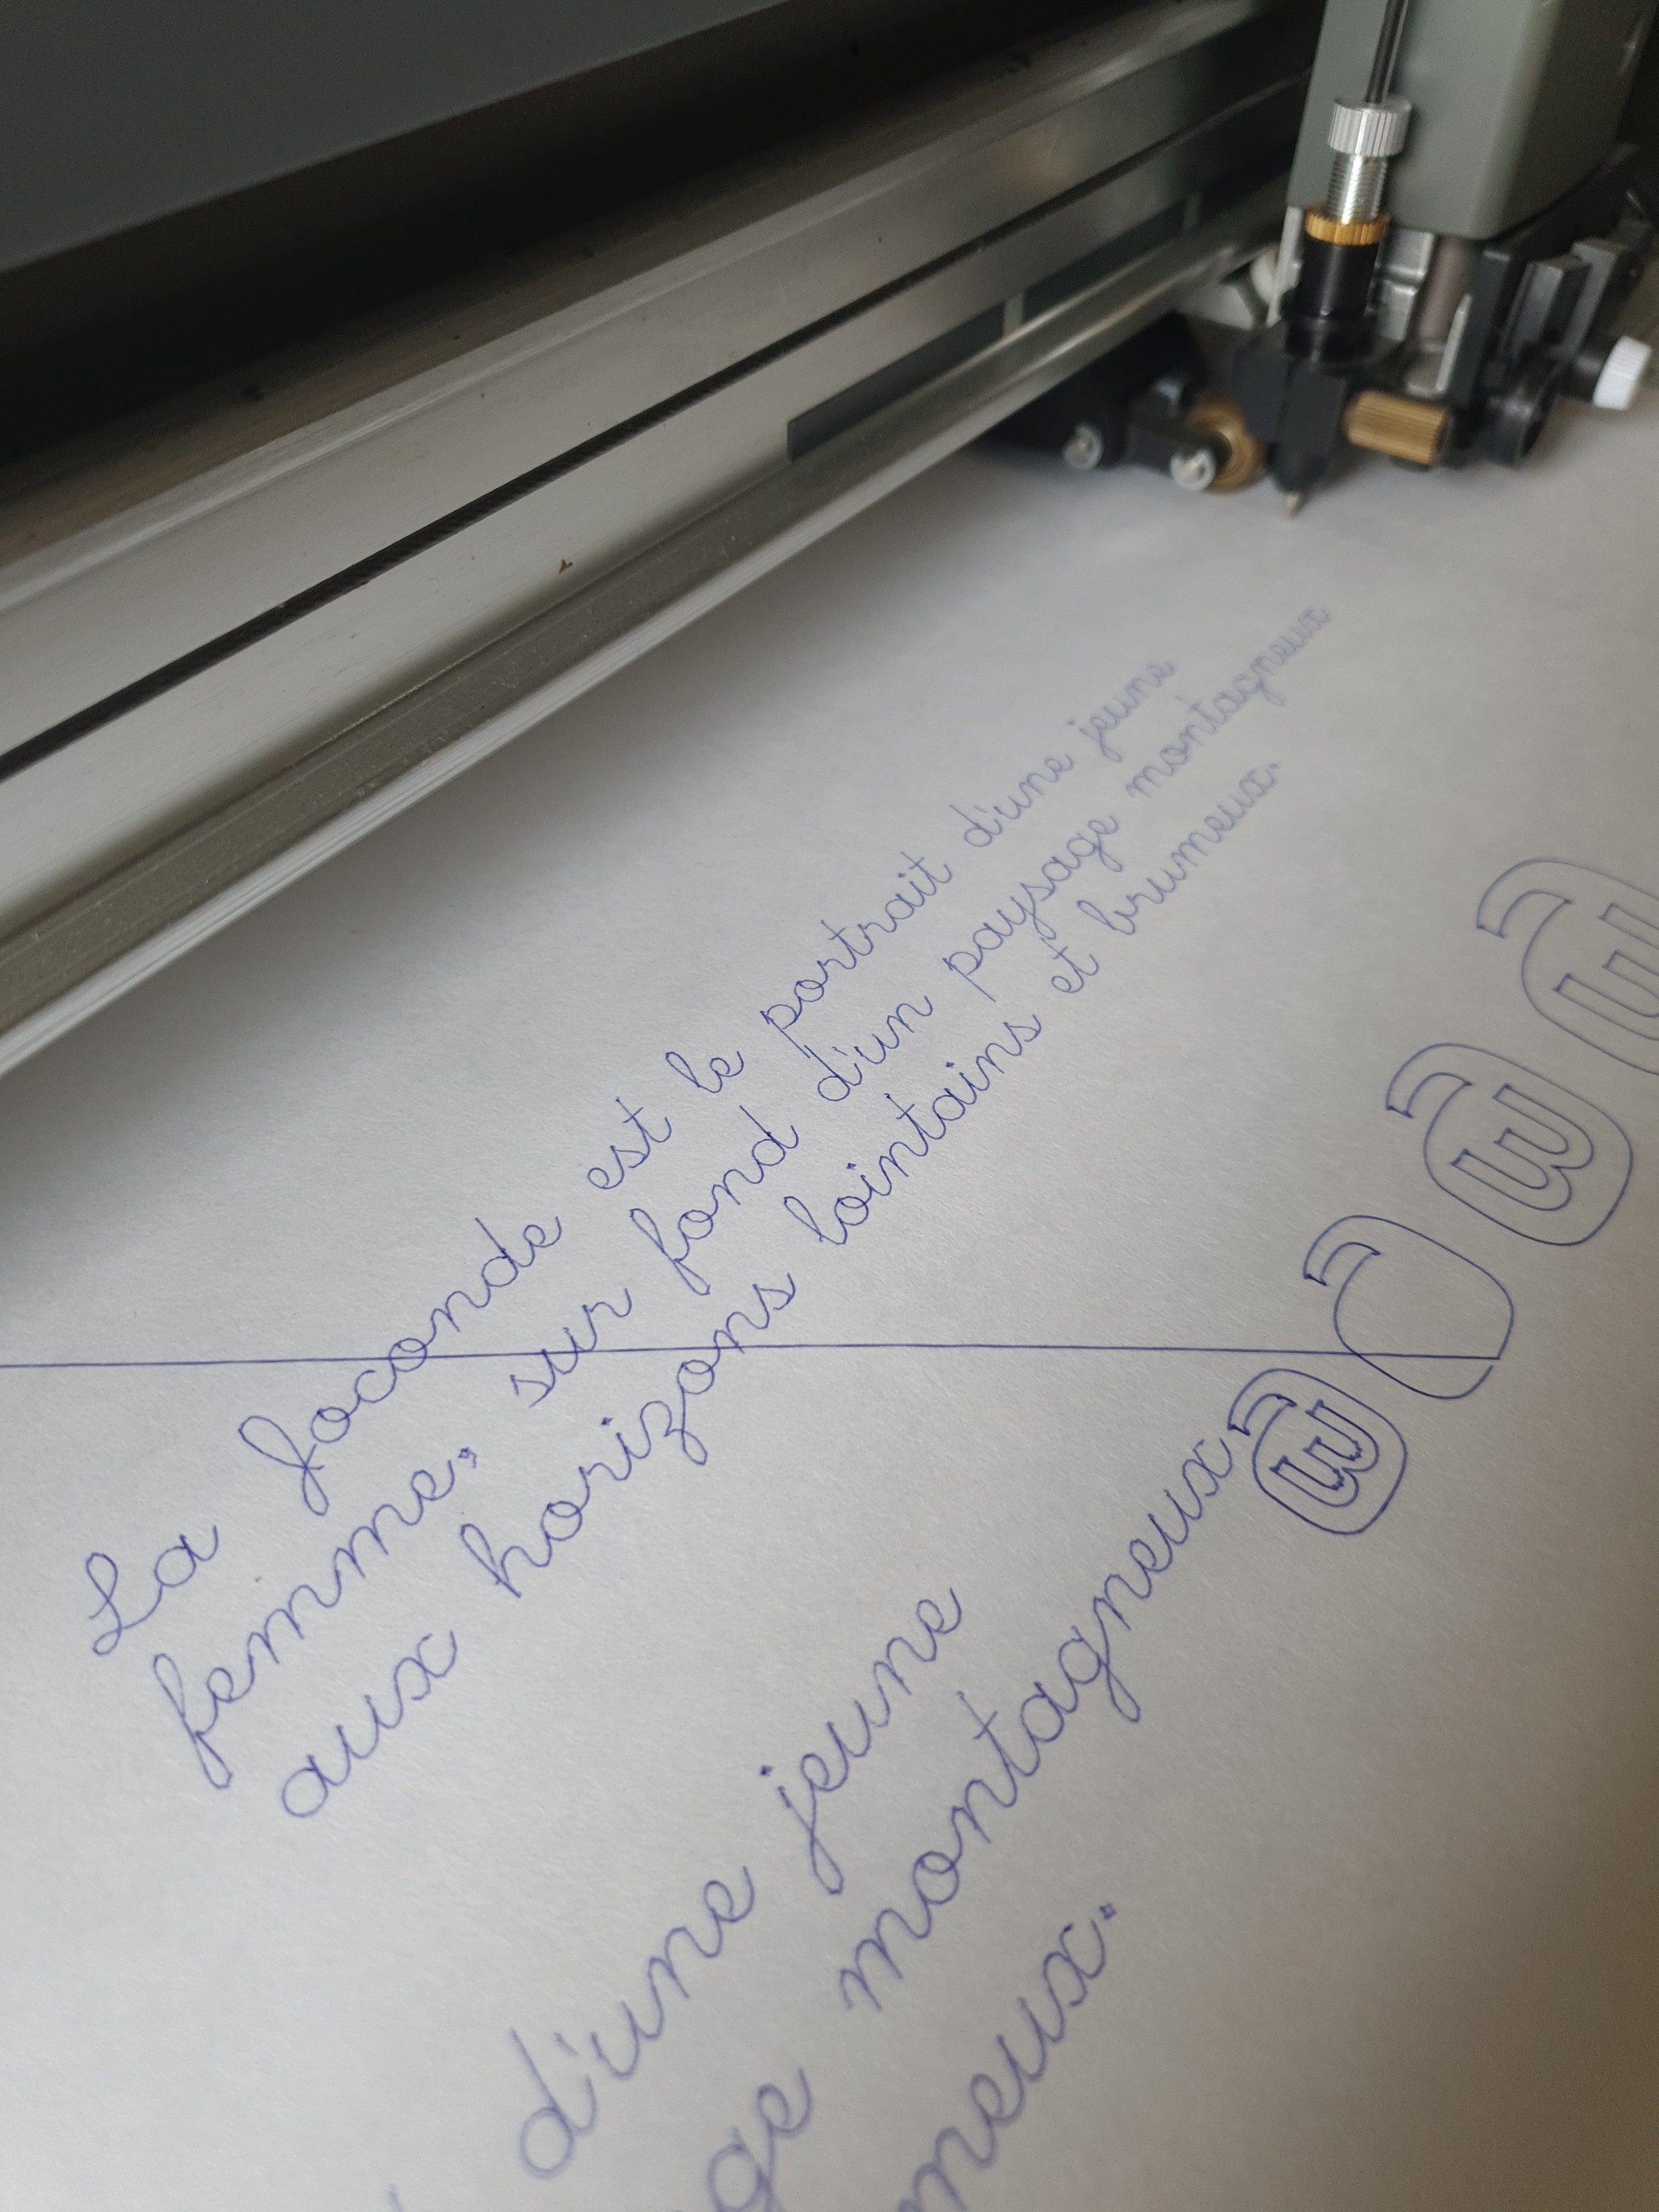 La Joconde est le portrait d'une jeune
femme, sur fond d'un paysage montagneux
aux horizons lointains et brumeux.
d'une jeune
ge montagneux
meux.